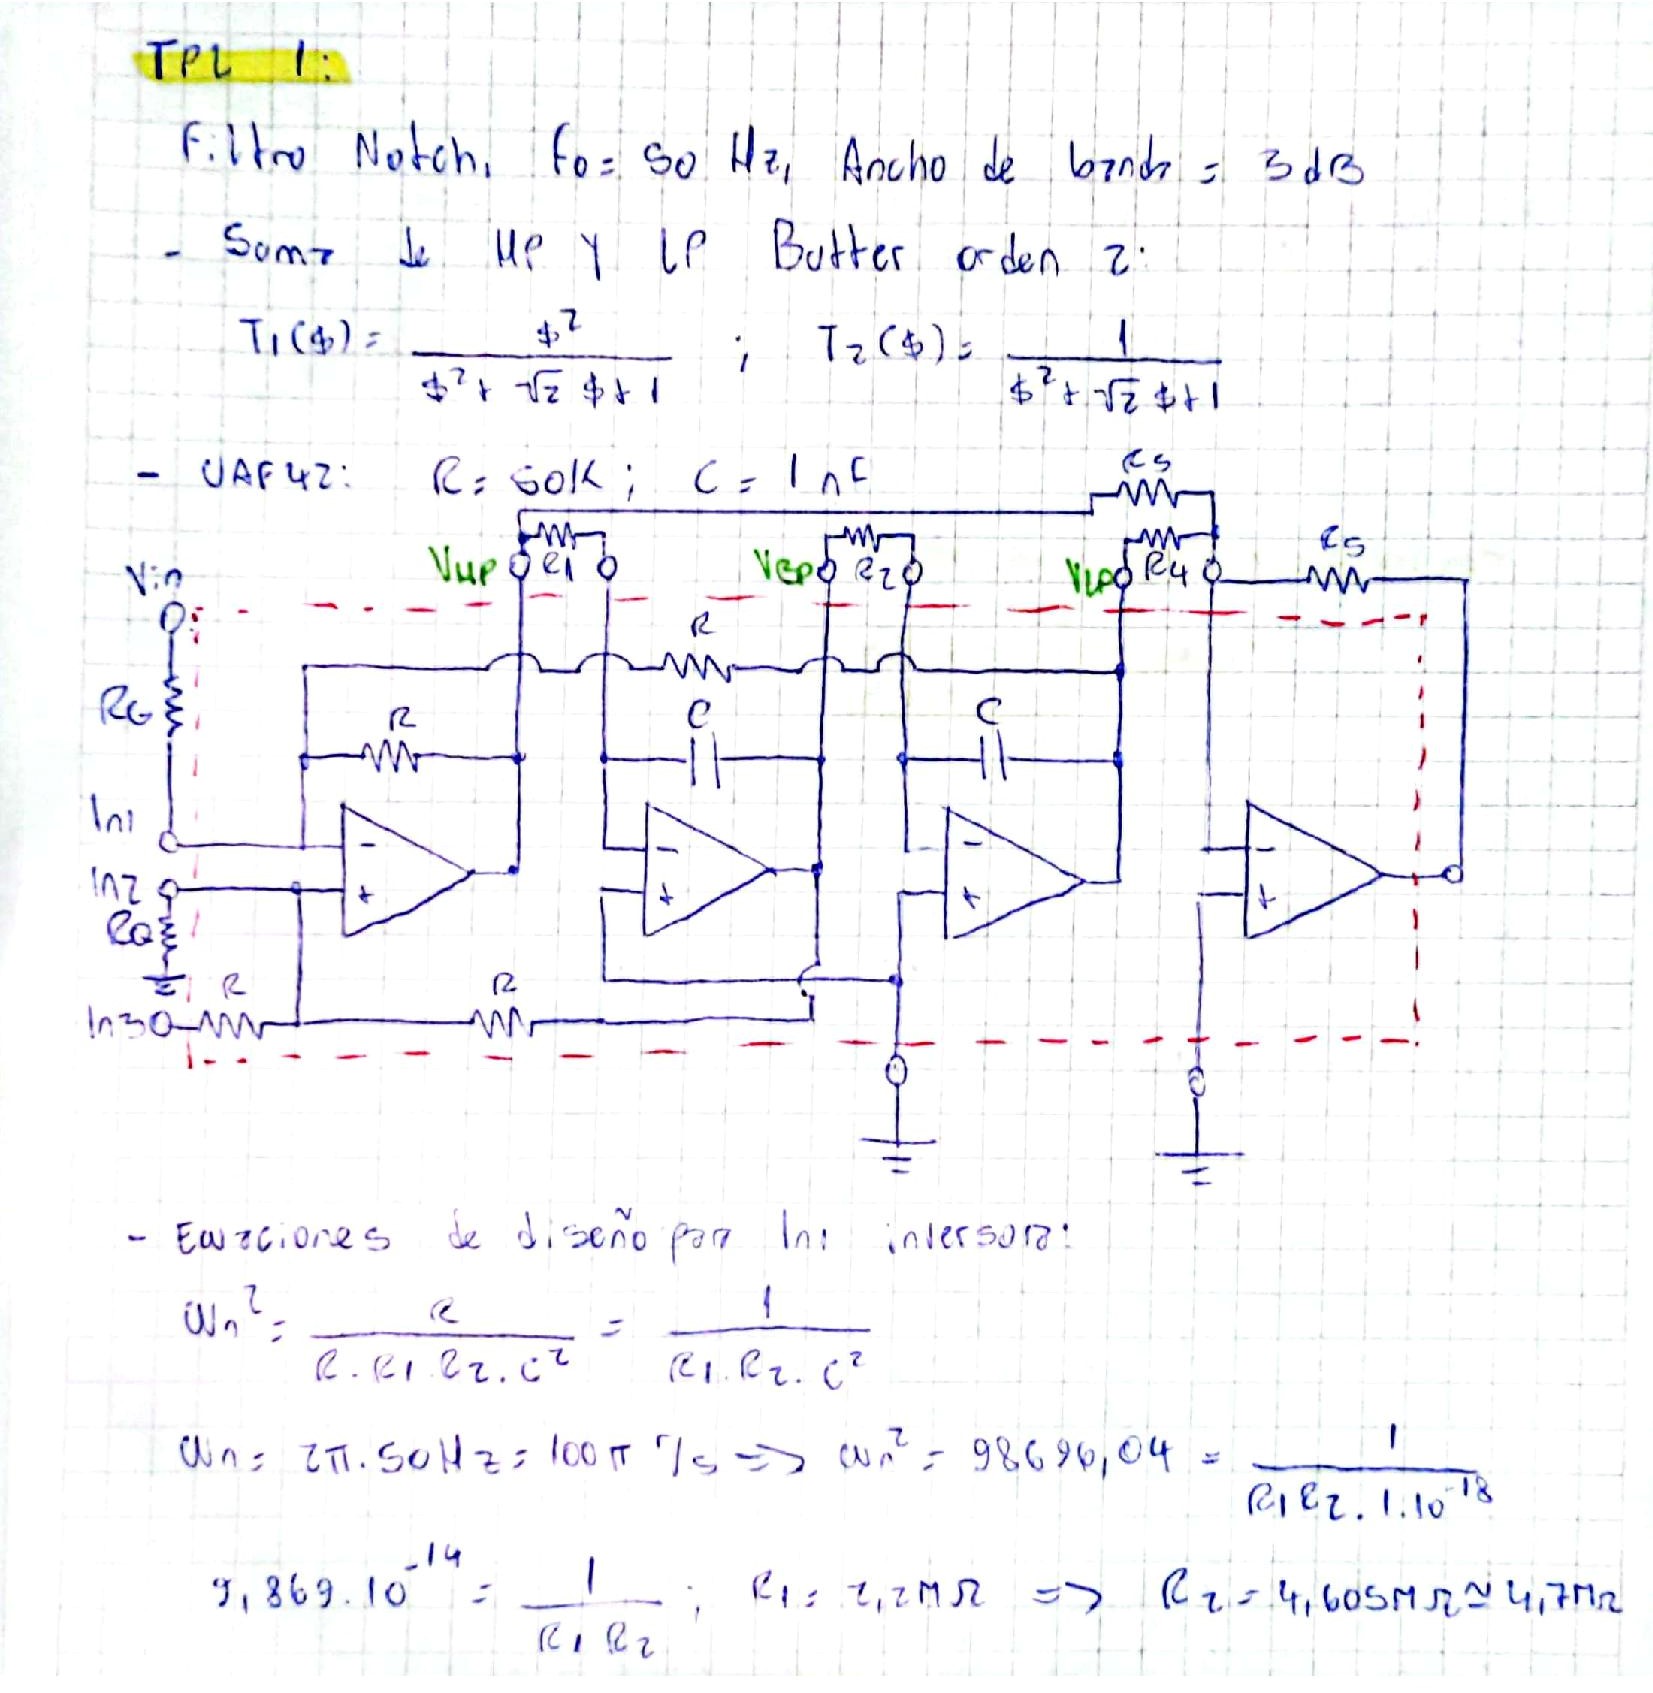 TPL 1:
Filtro Notch, fo = 50 Hz, Ancho de banda = 3 dB
- Suma de HP y LP Butter orden 2:
T1($) = $² / ($² + √2 $ + 1) ; T2($) = 1 / ($² + √2 $ + 1)
- UAF42: R = 50K ; C = 1 nF
R5
VHP R1 VBP R2 VLP R4 R5
Vin
R
RG
R C C
In1
In2
RQ
R R
In3
- - - -
+ + + +
- Ecuaciones de diseño para In1 inversora:
ωn² = R / (R . R1 . R2 . C²) = 1 / (R1 . R2 . C²)
ωn = 2π . 50Hz = 100π r/s => ωn² = 98696,04 = 1 / (R1 R2 . 1.10⁻¹⁸)
9,869.10⁻¹⁴ = 1 / (R1 R2) ; R1 = 2,2MΩ => R2 = 4,605MΩ ≃ 4,7MΩ